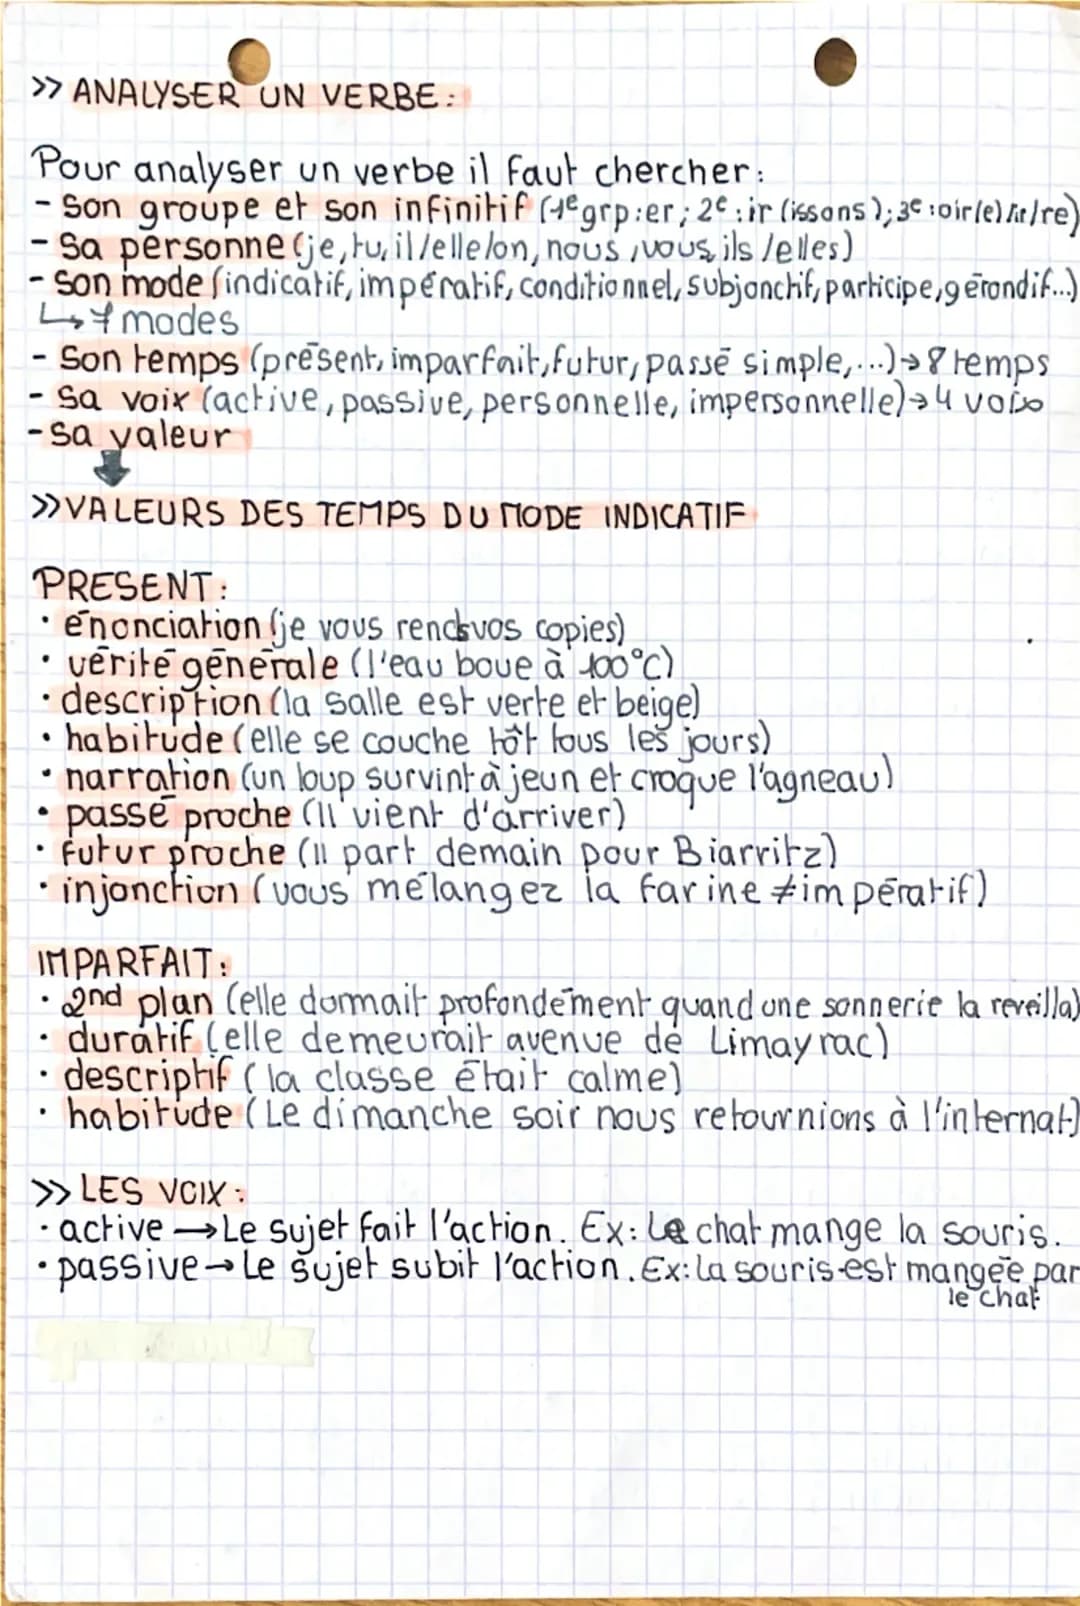 >> ANALYSER UN VERBE:
Pour analyser un verbe il faut chercher:
- Son groupe et son infinitif (1e grp:er; 2e:ir (issons); 3e:oir(e)/ir/re)
- Sa personne (je, tu, il/elle/on, nous, vous, ils/elles)
- Son mode (indicatif, impératif, conditionnel, subjonctif, participe, gérondif...)
↳ 7 modes
- Son temps (présent, imparfait, futur, passé simple,...)→8 temps
- Sa voix (active, passive, personnelle, impersonnelle)→4 voix
- Sa valeur
>> VALEURS DES TEMPS DU MODE INDICATIF
PRESENT:
• énonciation (je vous rends vos copies)
• vérité générale (l'eau boue à 100°C)
• description (la salle est verte et beige)
• habitude (elle se couche tôt tous les jours)
• narration (un loup survint à jeun et croque l'agneau)
• passé proche (Il vient d'arriver)
• futur proche (Il part demain pour Biarritz)
• injonction (vous mélangez la farine ≠impératif)
IMPARFAIT:
• 2nd plan (elle dormait profondément quand une sonnerie la reveilla)
• duratif (elle demeurait avenue de Limayrac)
• descriptif (la classe était calme)
• habitude (Le dimanche soir nous retournions à l'internat)
>> LES VOIX:
• active → Le sujet fait l'action. Ex: Le chat mange la souris.
• passive → Le sujet subit l'action. Ex: La souris est mangée par
le chat